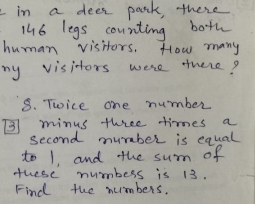 in a deer park, there
146 legs counting both
human visitors. How many
ny visitors were there?
8. Twice one number
3 minus three times a
second number is equal
to 1, and the sum of
these numbers is 13.
Find the numbers.